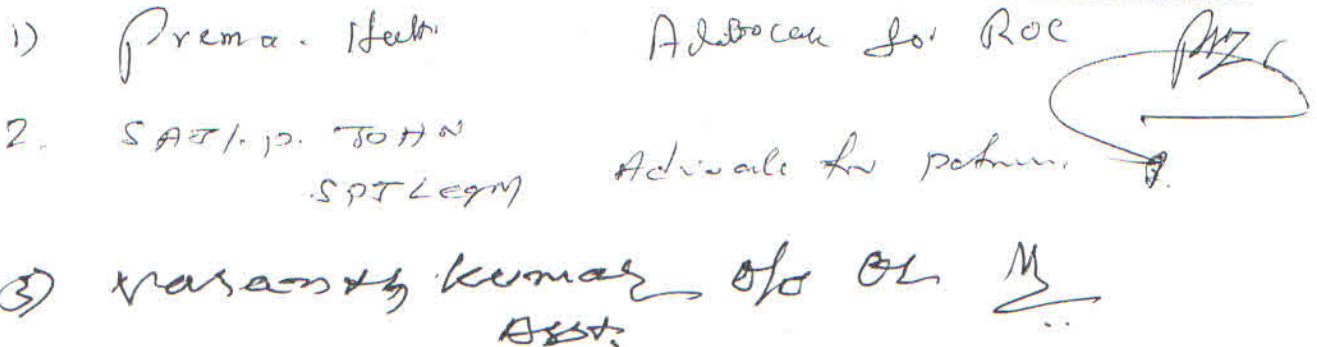 1) Prema. Hatti Advocate for ROC
2. SAJI. P. JOHN Advocate for petnr.
SPJ Legal
3) Vasanth Kumar O/o OL
Asst.